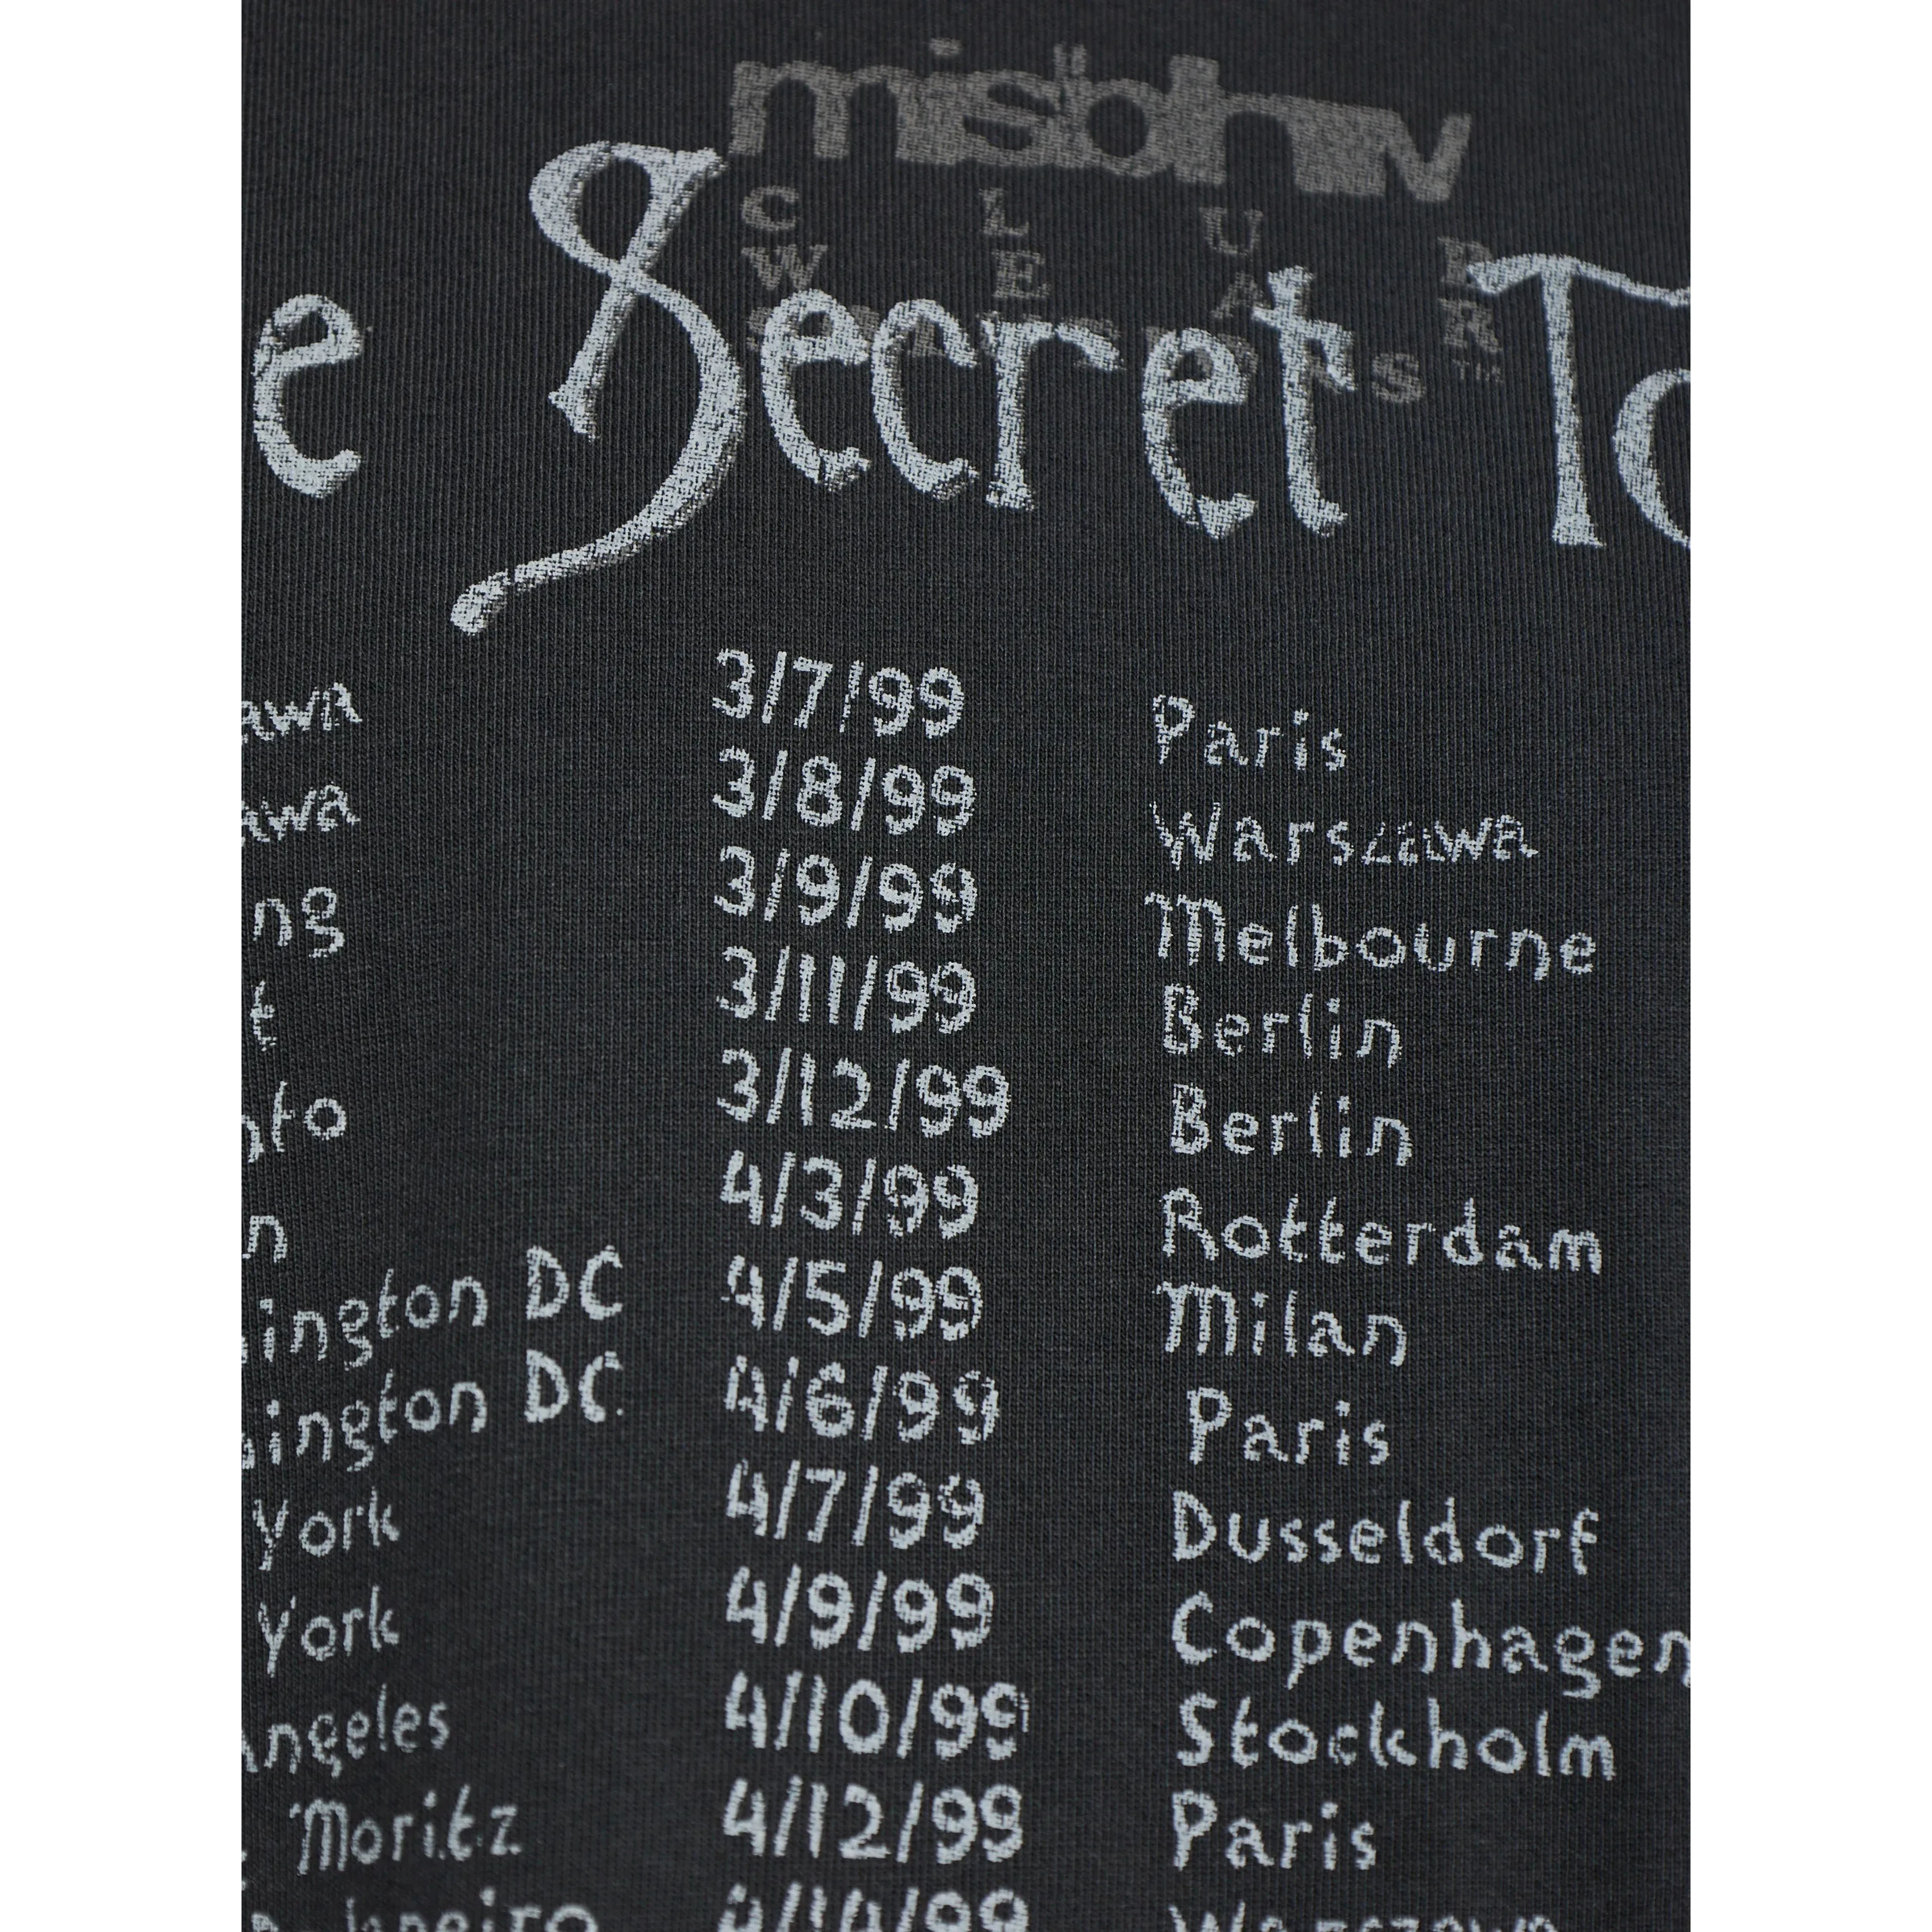 misbhv
C L U B
W E A R
e Secret To
awa 3/7/99 Paris
awa 3/8/99 Warszawa
ng 3/9/99 Melbourne
t 3/11/99 Berlin
nto 3/12/99 Berlin
n 4/3/99 Rotterdam
ington DC 4/5/99 Milan
ington DC 4/6/99 Paris
York 4/7/99 Dusseldorf
York 4/9/99 Copenhagen
Angeles 4/10/99 Stockholm
Moritz 4/12/99 Paris
Janeiro 4/14/99 Warszawa